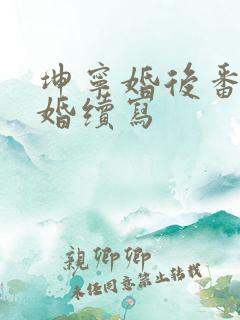 坤寧婚後番
婚續寫
親卿卿
未经同意禁止转载